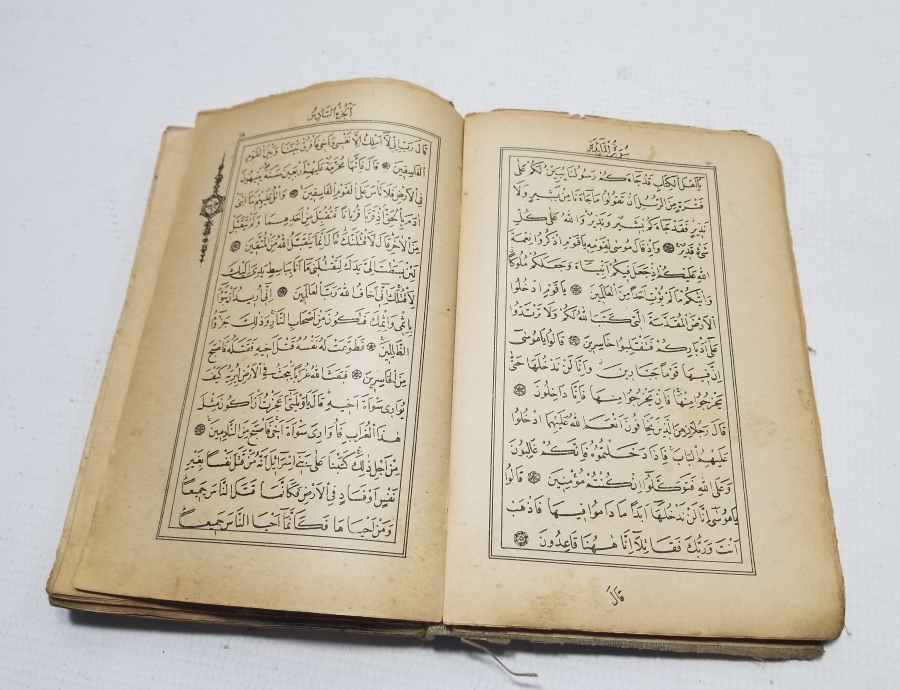 سُورَةُ الْمَائِدَةِ
يَا اَهْلَ الْكِتَابِ قَدْ جَاءَكُمْ رَسُولُنَا يُبَيِّنُ لَكُمْ عَلٰى
فَتْرَةٍ مِنَ الرُّسُلِ اَنْ تَقُولُوا مَا جَاءَنَا مِنْ بَشِيرٍ وَلَا
نَذِيرٍ فَقَدْ جَاءَكُمْ بَشِيرٌ وَنَذِيرٌ وَاللهُ عَلٰى كُلِّ
شَيْءٍ قَدِيرٌ وَاِذْ قَالَ مُوسٰى لِقَوْمِهِ يَا قَوْمِ اذْكُرُوا نِعْمَةَ
اللهِ عَلَيْكُمْ اِذْ جَعَلَ فِيكُمْ اَنْبِيَاءَ وَجَعَلَكُمْ مُلُوكًا
وَاٰتٰيكُمْ مَا لَمْ يُؤْتِ اَحَدًا مِنَ الْعَالَمِينَ يَا قَوْمِ ادْخُلُوا
الْاَرْضَ الْمُقَدَّسَةَ الَّتِي كَتَبَ اللهُ لَكُمْ وَلَا تَرْتَدُّوا
عَلٰى اَدْبَارِكُمْ فَتَنْقَلِبُوا خَاسِرِينَ قَالُوا يَا مُوسٰى
اِنَّ فِيهَا قَوْمًا جَبَّارِينَ وَاِنَّا لَنْ نَدْخُلَهَا حَتّٰى
يَخْرُجُوا مِنْهَا فَاِنْ يَخْرُجُوا مِنْهَا فَاِنَّا دَاخِلُونَ
قَالَ رَجُلَانِ مِنَ الَّذِينَ يَخَافُونَ اَنْعَمَ اللهُ عَلَيْهِمَا ادْخُلُوا
عَلَيْهِمُ الْبَابَ فَاِذَا دَخَلْتُمُوهُ فَاِنَّكُمْ غَالِبُونَ
وَعَلَى اللهِ فَتَوَكَّلُوا اِنْ كُنْتُمْ مُؤْمِنِينَ قَالُوا
يَا مُوسٰى اِنَّا لَنْ نَدْخُلَهَا اَبَدًا مَا دَامُوا فِيهَا فَاذْهَبْ
اَنْتَ وَرَبُّكَ فَقَاتِلَا اِنَّا هٰهُنَا قَاعِدُونَ
قَالَ
اَلْجُزْءُ السَّادِسُ
قَالَ رَبِّ اِنِّي لَا اَمْلِكُ اِلَّا نَفْسِي وَاَخِي فَافْرُقْ بَيْنَنَا وَبَيْنَ الْقَوْمِ
الْفَاسِقِينَ قَالَ فَاِنَّهَا مُحَرَّمَةٌ عَلَيْهِمْ اَرْبَعِينَ سَنَةً يَتِيهُونَ
فِي الْاَرْضِ فَلَا تَأْسَ عَلَى الْقَوْمِ الْفَاسِقِينَ وَاتْلُ عَلَيْهِمْ نَبَاَ ابْنَيْ
اٰدَمَ بِالْحَقِّ اِذْ قَرَّبَا قُرْبَانًا فَتُقُبِّلَ مِنْ اَحَدِهِمَا وَلَمْ يُتَقَبَّلْ
مِنَ الْاٰخَرِ قَالَ لَاَقْتُلَنَّكَ قَالَ اِنَّمَا يَتَقَبَّلُ اللهُ مِنَ الْمُتَّقِينَ
لَئِنْ بَسَطْتَ اِلَيَّ يَدَكَ لِتَقْتُلَنِي مَا اَنَا بِبَاسِطٍ يَدِيَ اِلَيْكَ
لِاَقْتُلَكَ اِنِّي اَخَافُ اللهَ رَبَّ الْعَالَمِينَ اِنِّي اُرِيدُ اَنْ تَبُوءَ
بِاِثْمِي وَاِثْمِكَ فَتَكُونَ مِنْ اَصْحَابِ النَّارِ وَذٰلِكَ جَزٰٓؤُا
الظَّالِمِينَ فَطَوَّعَتْ لَهُ نَفْسُهُ قَتْلَ اَخِيهِ فَقَتَلَهُ فَاَصْبَحَ
مِنَ الْخَاسِرِينَ فَبَعَثَ اللهُ غُرَابًا يَبْحَثُ فِي الْاَرْضِ لِيُرِيَهُ كَيْفَ
يُوَارِي سَوْاَةَ اَخِيهِ قَالَ يَا وَيْلَتٰى اَعَجَزْتُ اَنْ اَكُونَ مِثْلَ
هٰذَا الْغُرَابِ فَاُوَارِيَ سَوْاَةَ اَخِي فَاَصْبَحَ مِنَ النَّادِمِينَ
مِنْ اَجْلِ ذٰلِكَ كَتَبْنَا عَلٰى بَنِي اِسْرَائِيلَ اَنَّهُ مَنْ قَتَلَ نَفْسًا بِغَيْرِ
نَفْسٍ اَوْ فَسَادٍ فِي الْاَرْضِ فَكَاَنَّمَا قَتَلَ النَّاسَ جَمِيعًا
وَمَنْ اَحْيَاهَا فَكَاَنَّمَا اَحْيَا النَّاسَ جَمِيعًا